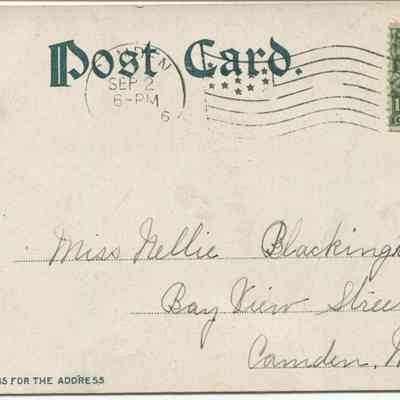 Post Card.
CAMDEN
SEP 2
6-PM
6
Miss Nellie Blackingt
Bay View Stree
Camden, M
IS FOR THE ADDRESS